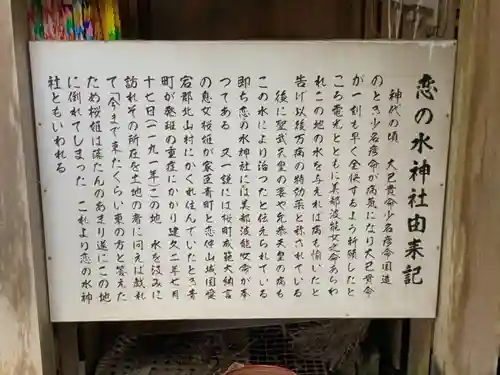 恋の水神社由来記
神代の頃 大己貴命少名彦命国造
のとき少名彦命が病気になり大己貴命
が一刻も早く全快するよう祈願したと
ころ電光とともに美都波能女之命あらわ
れこの地の水を与えれば病も愉いたと
告げ以後万病の特効薬と称されている
後に聖武天皇の妻や允恭天皇の病も
この水により治ったと伝えられている
即ち恋の水神社には美都波能女命が本
つてある 又一説には桜町成範大納言
の息女桜姫が家臣青町と恋仲山城国愛
宕郡北山村にかくれ住んでいたとき青
町が癩斑の重症にかかり建久二年七月
十七日(一一九一年)この地 水を汲みに
訪れその所在を土地の者に問えば戯れ
て「今まで来たくらい東の方と答えた
ため桜姫は落たんのあまり遂にこの地
に倒れてしまった これより恋の水神
社ともいわれる